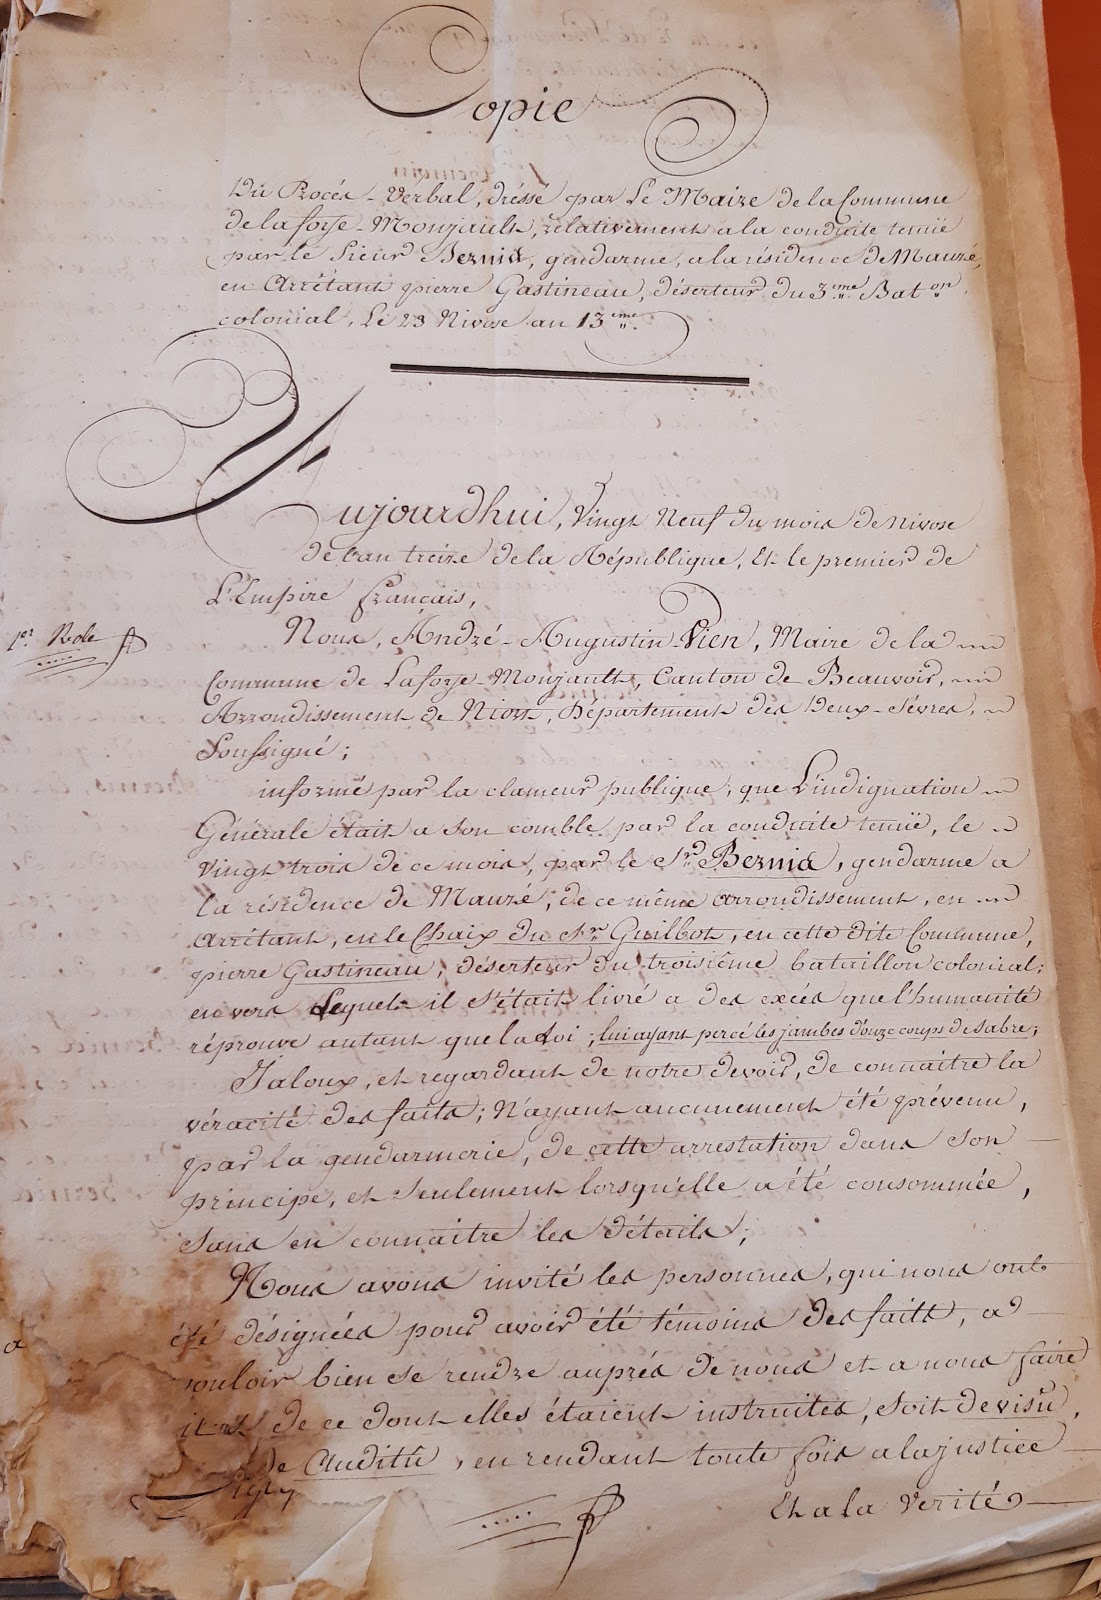 Copie
Du Procès-Verbal, dressé par Le Maire de la Commune
de laforye-Monjault, relativement a la conduite tenuë
par le Sieur Bernid, gendarme, a la résidence de Mauzé,
en Arrêtant pierre Gastineau, déserteur du 3.eme Bat.on
colonial, Le 23 Nivose an 13.eme
Aujourdhui, Vingt Neuf du mois de Nivose
de l'an treize de la République, Et le premier de
L'Empire français,
1.er Role
Nous, André-Augustin Vien, Maire de la
Commune de Laforye-Monjault, Canton de Beauvoir,
Arrondissement de Niort, Département des Deux-Sèvres,
Soussigné;
informé par la clameur publique, que L'indignation
Générale était a son comble par la conduite tenuë, le
Vingt trois de ce mois, par le S.r Bernid, gendarme a
la résidence de Mauzé, de ce même arrondissement, en
arrêtant, en le Chaix du S.r Guilbot, en cette dite Commune,
pierre Gastineau, déserteur du troisième bataillon colonial;
envers Lequel il s'était livré a des excès que l'humanité
réprouve autant que la Loi, lui ayant percé les jambes d'onze coups de sabre;
Jaloux, et regardant de notre devoir, de connaitre la
véracité des faits; N'ayant aucunement été prévenu,
par la gendarmerie, de cette arrestation dans son
principe, et seulement lorsqu'elle a été consommée,
sans en connaitre les détails;
Nous avons invité les personnes, qui nous ont
été désignées pour avoir été témoins des faits, a
vouloir bien se rendre auprès de nous et a nous faire
de ce dont elles étaient instruites, soit de visu,
de Auditû, en rendant toute fois a la justice
Et a la Verité